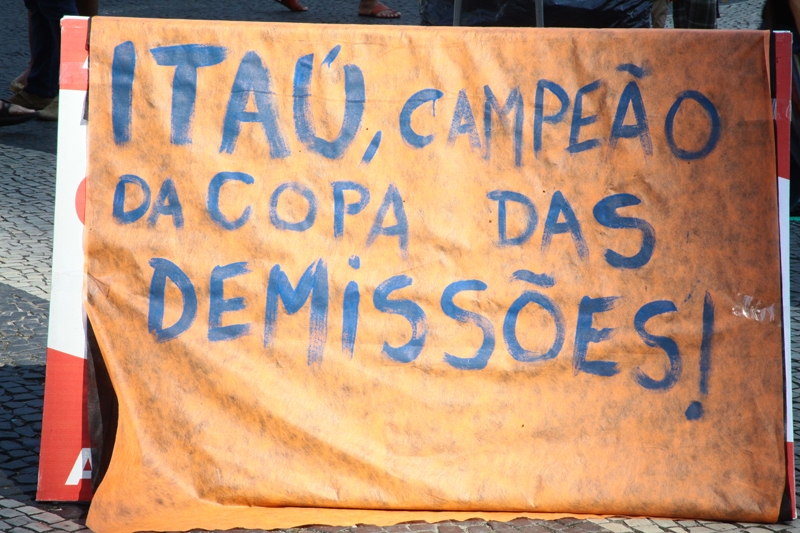 ITAÚ, CAMPEÃO
DA COPA DAS
DEMiSSÕES!
A